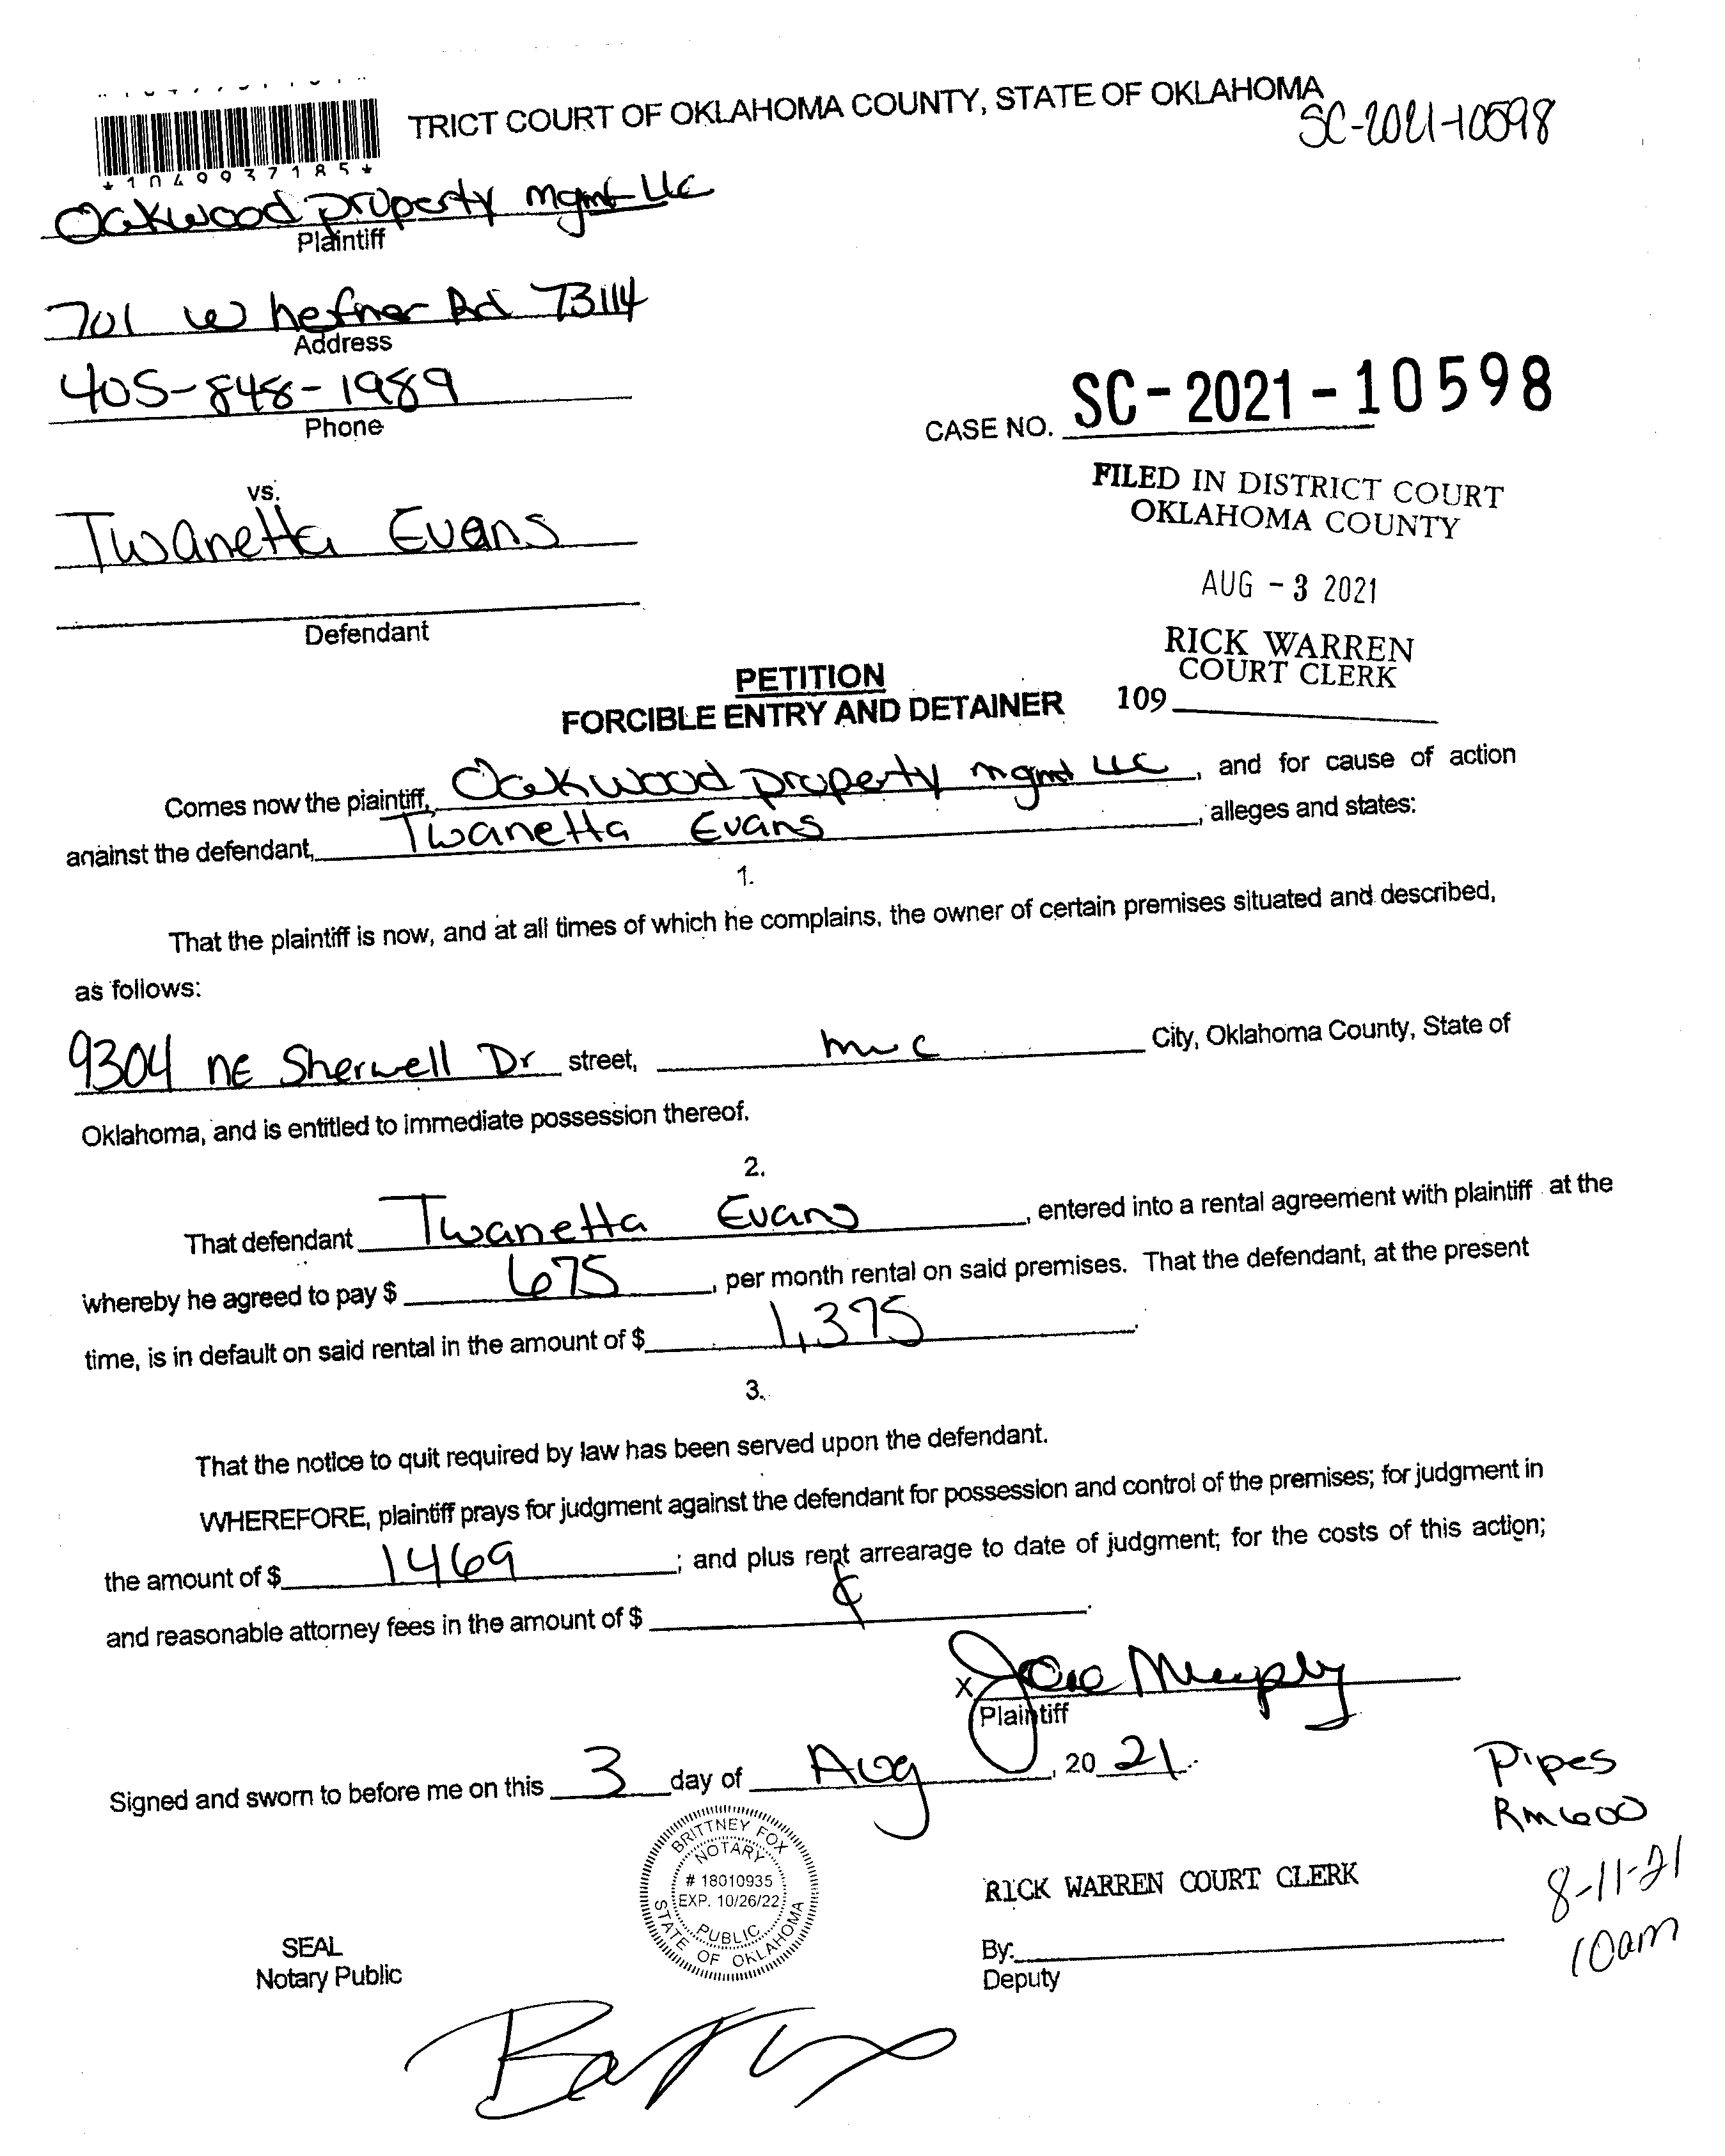 TRICT COURT OF OKLAHOMA COUNTY, STATE OF OKLAHOMA
SC-2021-10598
*1049937185*
Oakwood property mgmt LLC
Plaintiff
701 W hefner Rd 73114
Address
405-848-1989
Phone
CASE NO. SC-2021-10598
FILED IN DISTRICT COURT
OKLAHOMA COUNTY
vs.
Twanetta Evans
AUG - 3 2021
Defendant
RICK WARREN
COURT CLERK
109
PETITION
FORCIBLE ENTRY AND DETAINER
Comes now the plaintiff, Oakwood property mgmt LLC, and for cause of action
against the defendant, Twanetta Evans, alleges and states:
1.
That the plaintiff is now, and at all times of which he complains, the owner of certain premises situated and described,
as follows:
9304 NE Sherwell Dr street, mwc City, Oklahoma County, State of
Oklahoma, and is entitled to immediate possession thereof.
2.
That defendant Twanetta Evans, entered into a rental agreement with plaintiff at the
whereby he agreed to pay $ 675, per month rental on said premises. That the defendant, at the present
time, is in default on said rental in the amount of $ 1,375.
3.
That the notice to quit required by law has been served upon the defendant.
WHEREFORE, plaintiff prays for judgment against the defendant for possession and control of the premises; for judgment in
the amount of $ 1469; and plus rent arrearage to date of judgment; for the costs of this action;
and reasonable attorney fees in the amount of $
X Murphy
Plaintiff
Signed and sworn to before me on this 3 day of Aug, 2021.
Pipes
Rm 600
8-11-21
10am
BRITTNEY FOX
NOTARY
# 18010935
EXP. 10/26/22
PUBLIC
STATE OF OKLAHOMA
RICK WARREN COURT CLERK
SEAL
Notary Public
By:
Deputy